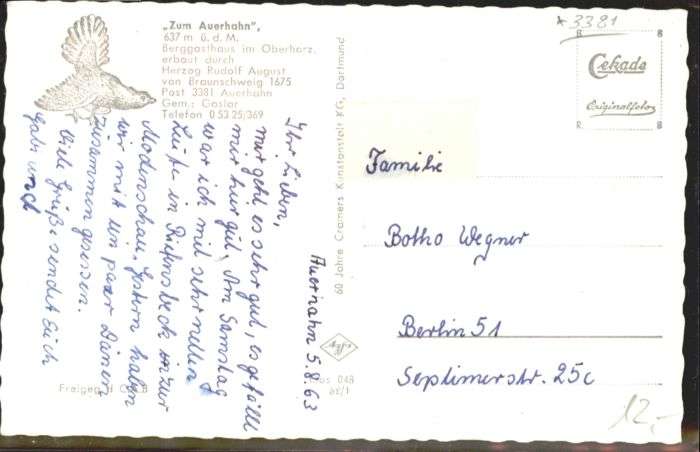 „Zum Auerhahn",
637 m ü. d. M.
Berggasthaus im Oberharz.
erbaut durch
Herzog Rudolf August
von Braunschweig 1675
Post 3381 Auerhahn
Gem.: Goslar
Telefon 0 53 25/369
Auerhahn 5.8.63
Ihr Lieben,
mir geht es sehr gut, es gefällt
mir hier gut. Am Samstag
war ich mit sehr netten
Leute in Riefensbeck zur
Modenschau. Gestern haben
wir mit ein paar Dänen
zusammen gesessen.
Viele Grüße sendet Euch
Gabi und
Freigeg. d
60 Jahre Cramers Kunstanstalt KG, Dortmund
Agfa
048
3381
Cekade
Originalfoto
Familie
Botho Wegner
Berlin 51
Septimerstr. 25c
12,-